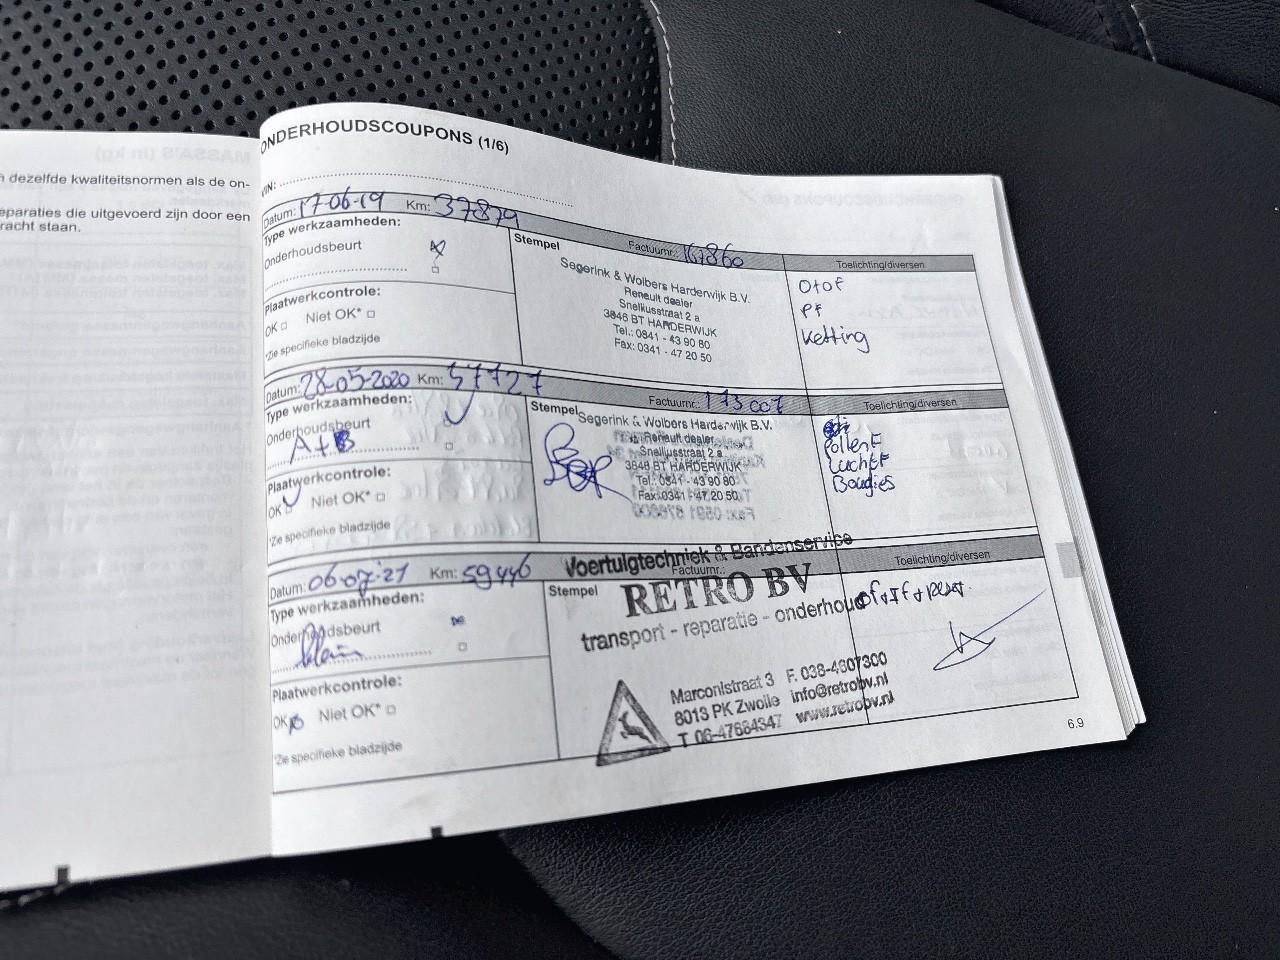 MASSA'S (in kg)
dezelfde kwaliteitsnormen als de on-
eparaties die uitgevoerd zijn door een
racht staan.
ONDERHOUDSCOUPONS (1/6)
VIN:
Datum: 17-06-19 Km: 37879
Factuurnr.: 167860
Toelichting/diversen
Type werkzaamheden:
Onderhoudsbeurt
Plaatwerkcontrole:
OK Niet OK*
*Zie specifieke bladzijde
Stempel
Segerink & Wolbers Harderwijk B.V.
Renault dealer
Snelliusstraat 2 a
3846 BT HARDERWIJK
Tel.: 0341 - 43 90 80
Fax: 0341 - 47 20 50
O+oF
PF
Ketting
Datum: 28-05-2020 Km: 57727
Factuurnr.: 173007
Toelichting/diversen
Type werkzaamheden:
Onderhoudsbeurt
A+B
Plaatwerkcontrole:
OK Niet OK*
*Zie specifieke bladzijde
Stempel
Segerink & Wolbers Harderwijk B.V.
Renault dealer
Snelliusstraat 2 a
3846 BT HARDERWIJK
Tel.: 0341 - 43 90 80
Fax: 0341 - 47 20 50
PollenF
LuchtF
Bougies
Datum: 06-07-'21 Km: 59446
Factuurnr.:
Toelichting/diversen
Type werkzaamheden:
Onderhoudsbeurt
klein
Plaatwerkcontrole:
OK Niet OK*
*Zie specifieke bladzijde
Stempel
Voertuigtechniek & Bandenservice
RETRO BV
transport - reparatie - onderhoud
Marconistraat 3 F. 038-4607300
8013 PK Zwolle info@retrobv.nl
T 06-47684347 www.retrobv.nl
of+If+reset
6.9